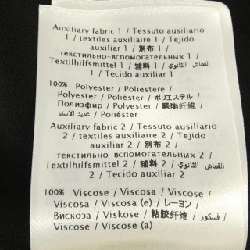 Auxiliary fabric 1 / Tessuto ausiliario
1 / textiles auxiliaire 1 / Tejido
auxiliar 1 / 別布 1 /
текстильно - вспомогательных 1 /
Textilhilfsmittel 1 / 辅料 1 /
1 / Tecido auxiliar 1
100% Polyester / Poliestere /
Polyester / Poliéster / ポリエステル /
Полиэфир / Polyester / 聚酯纤维 /
/ Poliéster
Auxiliary fabric 2 / Tessuto ausiliario
2 / textiles auxiliaire 2 / Tejido
auxiliar 2 / 別布 2 /
текстильно - вспомогательных 2 /
Textilhilfsmittel 2 / 辅料 2 /
2 / Tecido auxiliar 2
100% Viscose / Viscosa / Viscose /
Viscosa / Viscosa (e) / レーヨン /
Вискоза / Viskose / 粘胶纤维 / فسكوز /
Viscose / Viscose (a)